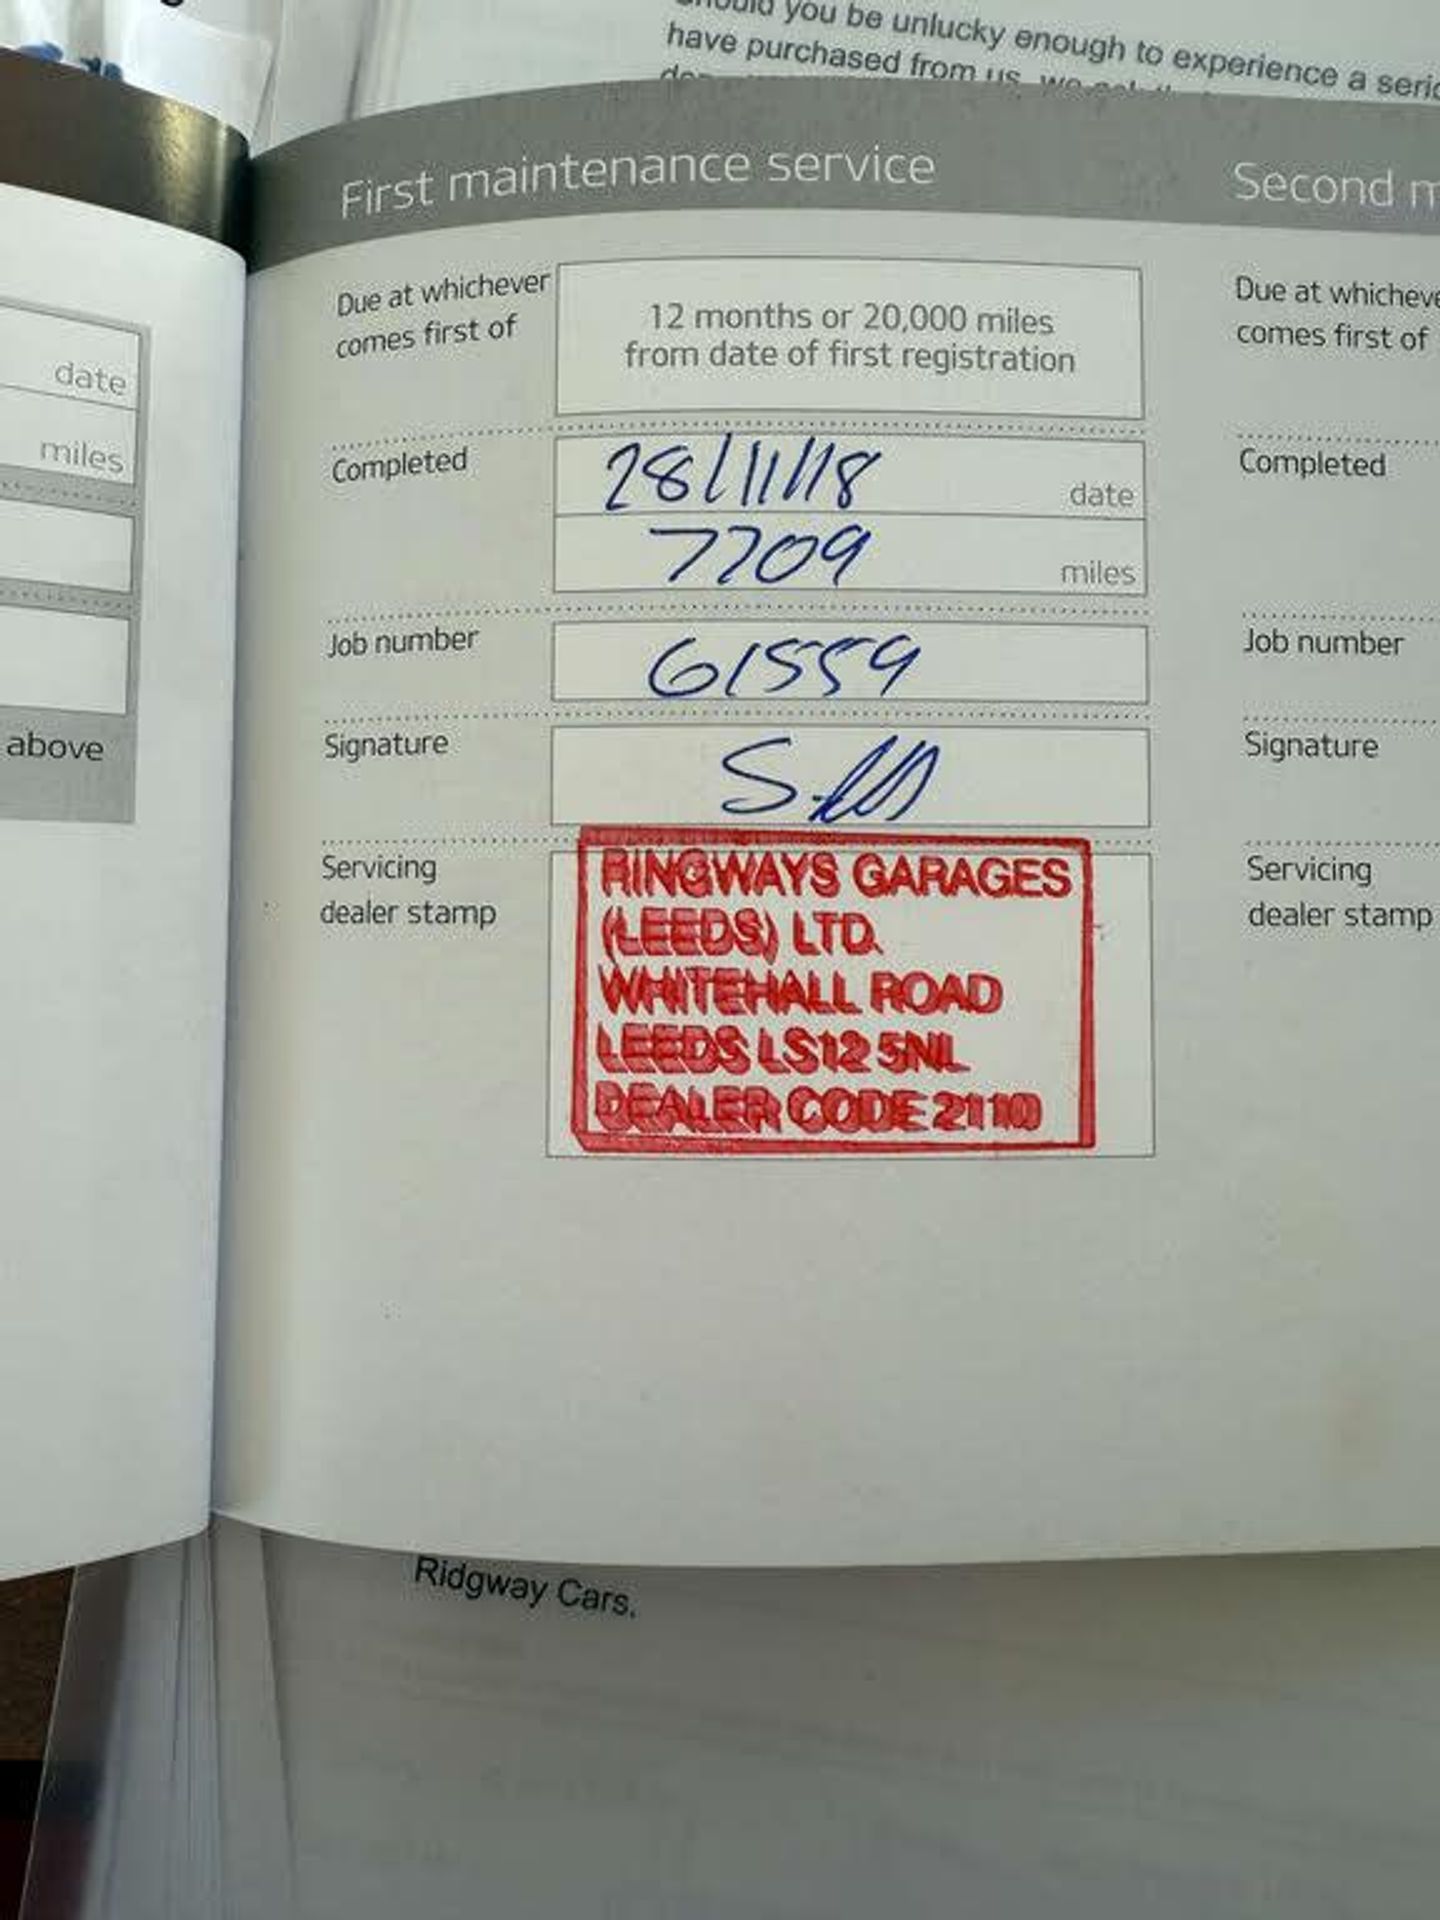 Should you be unlucky enough to experience a seri
have purchased from us, we
First maintenance service
Second m
Due at whichever
comes first of
12 months or 20,000 miles
from date of first registration
Due at whicheve
comes first of
date
miles
Completed
28/11/18 date
7709 miles
Completed
Job number
61559
Job number
above
Signature
Signature
Servicing
dealer stamp
RINGWAYS GARAGES
(LEEDS) LTD.
WHITEHALL ROAD
LEEDS LS12 5NL
DEALER CODE 2110
Servicing
dealer stamp
Ridgway Cars.